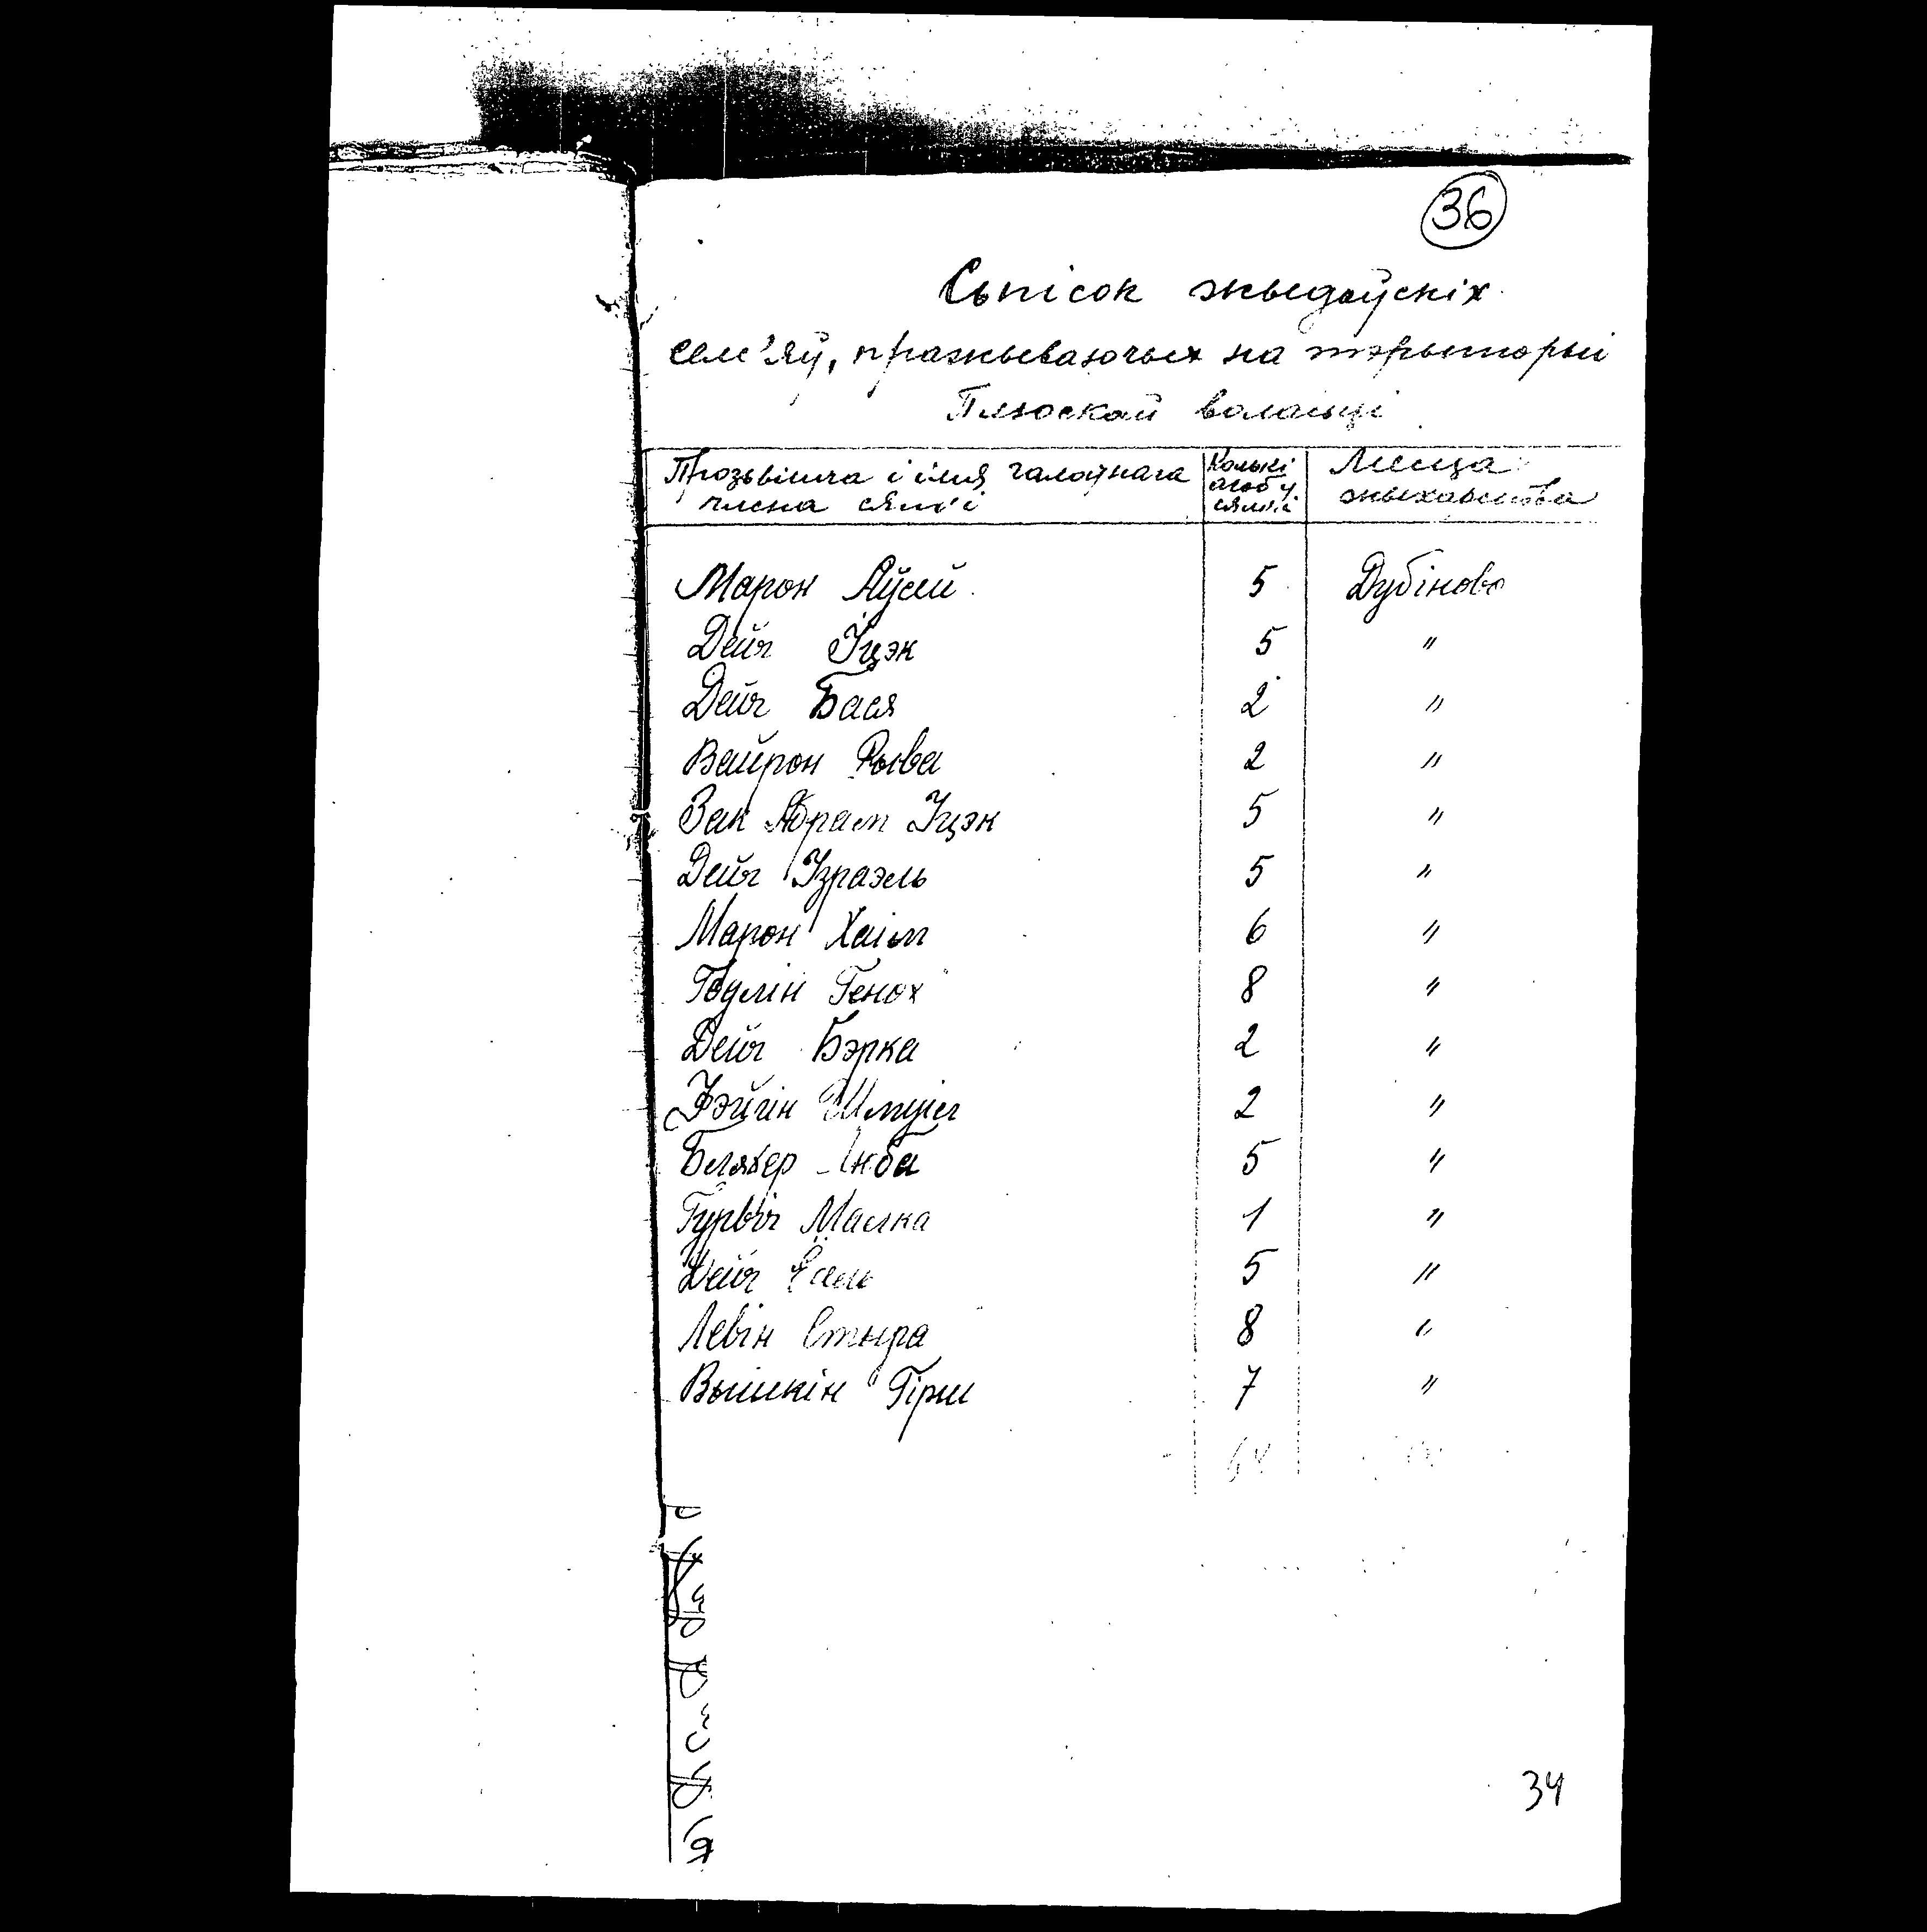 36
Сьпісок жыдаўскіх
сем'яў, пражываючых на тэрыторыі
Плюскай воласьці
Прозьвішча і імя галоўнага члена сям'і
Колькі асоб у сям'і
Месца жыхарства
Марон Аўсей 5 Дубіново
Дейч Іцэк 5 "
Дейч Бася 2 "
Вайрон Рыва 2 "
Зак Абрам Іцэк 5 "
Дейч Ізраэль 5 "
Марон Хаім 6 "
Годлін Генох 8 "
Дейч Бэрка 2 "
Фэйгін 2 "
Бляхер 5 "
Гурвіч Малка 1 "
Дейч 5 "
Левін 8 "
Вышкін Гірш 7 "
34